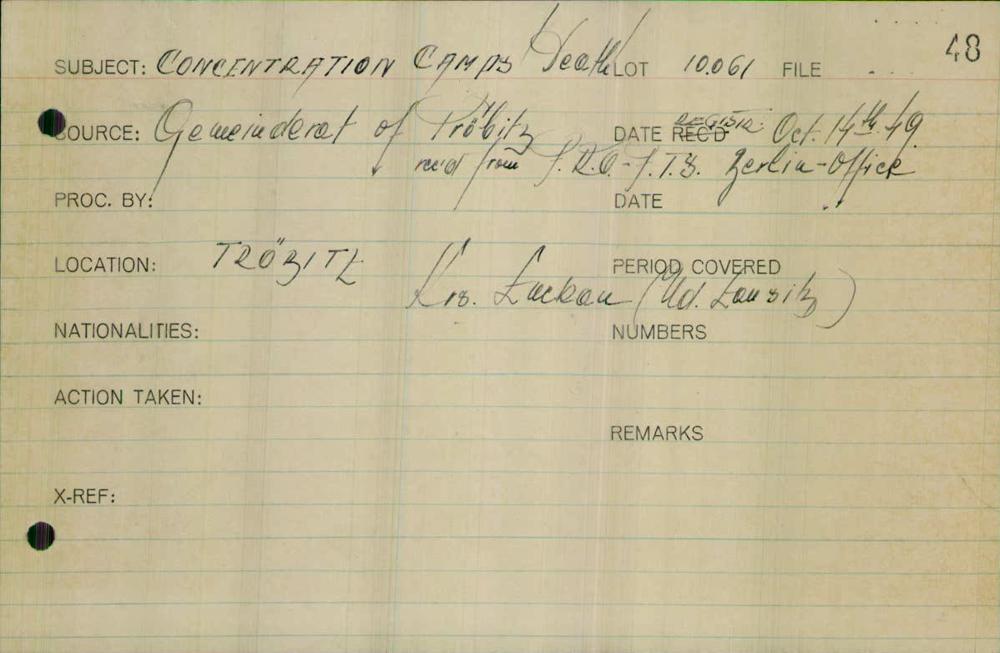 48
SUBJECT: CONCENTRATION CAMPS Death LOT 10.061 FILE
SOURCE: Gemeinderat of Tröbitz DATE REC'D REGISTR. Oct. 14th 49
rec'd from I.R.O.-I.T.S. Berlin-Office
PROC. BY: DATE
LOCATION: TRÖBITZ PERIOD COVERED
Krs. Luckau (Nd. Lausitz)
NATIONALITIES: NUMBERS
ACTION TAKEN:
REMARKS
X-REF: